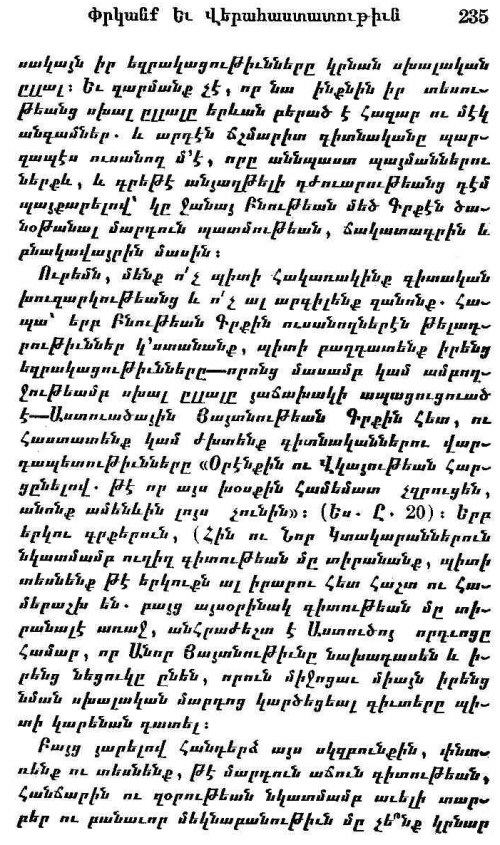 Փրկանք Եւ Վերահաստատութիւն 235
սակայն իր եզրակացութիւնները կրնան սխալական
ըլլալ։ Եւ զարմանք չէ, որ նա ինքնին իր տեսու-
թեանց սխալ ըլլալը երևան բերած է հազար ու մէկ
անգամներ. և արդէն ճշմարիտ գիտնականը պար-
զապէս ուսանող մ՚է, որը աննպաստ պայմաններու
ներքև, և գրեթէ անյաղթելի դժուարութեանց դէմ
պայքարելով՝ կը ջանայ բնութեան մեծ Գրքէն ծա-
նօթանալ մարդուն պատմութեան, ճակատագրին և
բնակավայրին մասին։
Ուրեմն, մենք ո՛չ պիտի հակառակինք գիտական
խուզարկութեանց և ո՛չ ալ արգիլենք զանոնք. հա-
պա՝ երբ բնութեան Գրքին ուսանողներէն թելադ-
րութիւններ կ՚ստանանք, պիտի բաղդատենք իրենց
եզրակացութիւնները—որոնց մասամբ կամ ամբող-
ջութեամբ սխալ ըլլալը յաճախակի ապացուցուած
է—Աստուածային Յայտնութեան Գրքին հետ, ու
հաստատենք կամ ժխտենք գիտնականներու վար-
դապետութիւնները «Օրէնքին ու վկայութեան հար-
ցընելով. թէ որ այս խօսքին համեմատ չզրուցեն,
անոնք ամենևին լոյս չունին»։ (Ես. Ը. 20)։ Երբ
երկու գրքերուն, (Հին ու Նոր Կտակարաններուն
նկատմամբ ուղիղ գիտութեան մը տիրանանք, պիտի
տեսնենք թէ երկուքն ալ իրարու հետ հաշտ ու հա-
մերաշխ են. բայց այսօրինակ գիտութեան մը տի-
րանալէ առաջ, անհրաժեշտ է Աստուծոյ որդւոցը
համար, որ Անոր Յայտնութիւնը նախադասեն և ի-
րենց նեցուկը ընեն, որուն միջոցաւ միայն իրենց
նման սխալական մարդոց կարծեցեալ գիւտերը պի-
տի կարենան դատել։
Բայց յարելով հանդերձ այս սկզբունքին, փնտ-
ռենք ու տեսնենք, թէ մարդուն աճուն գիտութեան,
հանճարին ու զօրութեան նկատմամբ աւելի տար-
բեր ու բանաւոր մեկնաբանութիւն մը չե՞նք կրնար